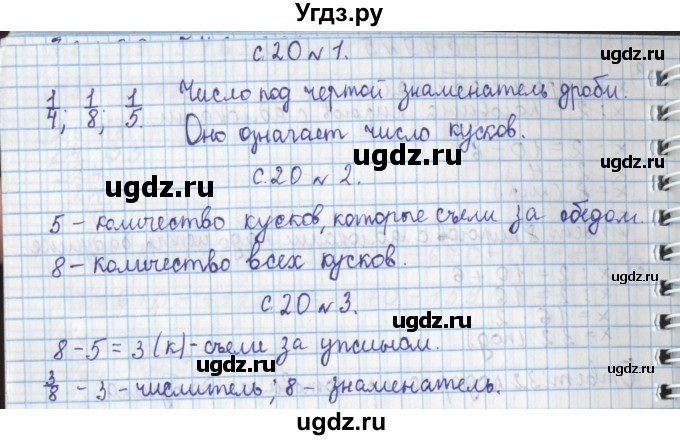 Угдз.ру
с.20 №1.
1/4; 1/8; 1/5. Число под чертой знаменатель дроби.
Оно означает число кусков.
с.20 №2.
5 - количество кусков, которые съели за обедом.
8 - количество всех кусков.
с.20 №3.
8-5=3(к)-съели за ужином.
3/8 - 3 - числитель; 8 - знаменатель.
ugdz.ru
ugdz.ru
ugdz.ru
ugdz.ru
ugdz.ru
ugdz.ru
ugdz.ru
ugdz.ru
ugdz.ru
ugdz.ru